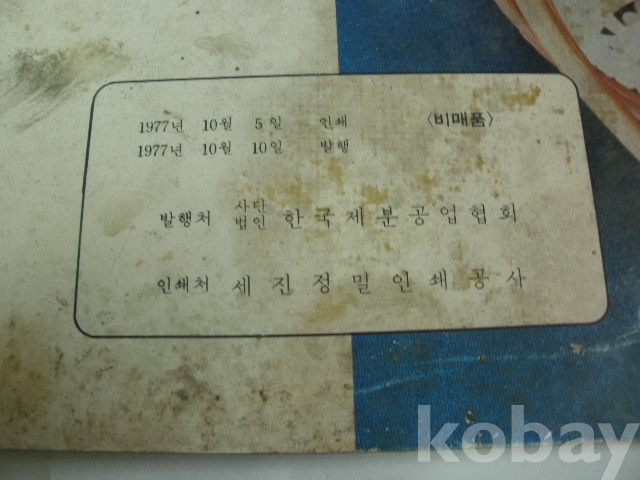 1977년 10월 5일 인쇄 〈비매품〉
1977년 10월 10일 발행
발행처 사단법인 한국제분공업협회
인쇄처 세진정밀인쇄공사
kobay